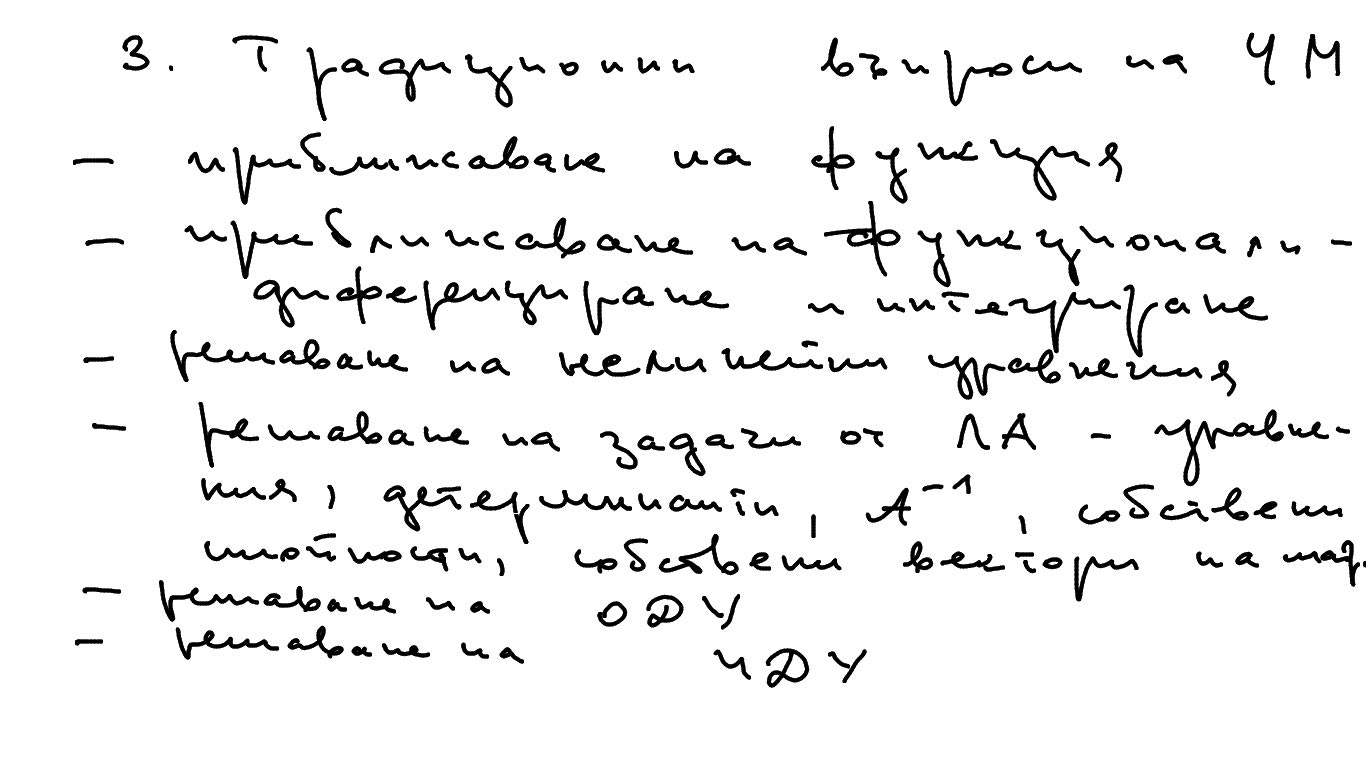 3. Традиционни въпроси на ЧМ
— приближаване на функция
— приближаване на функционали -
диференциране и интегриране
— решаване на нелинейни уравнения
— решаване на задачи от ЛА - уравне-
ния, детерминанти, A⁻¹, собствени
стойности, собствени вектори на матр.
— решаване на ОДУ
— решаване на ЧДУ